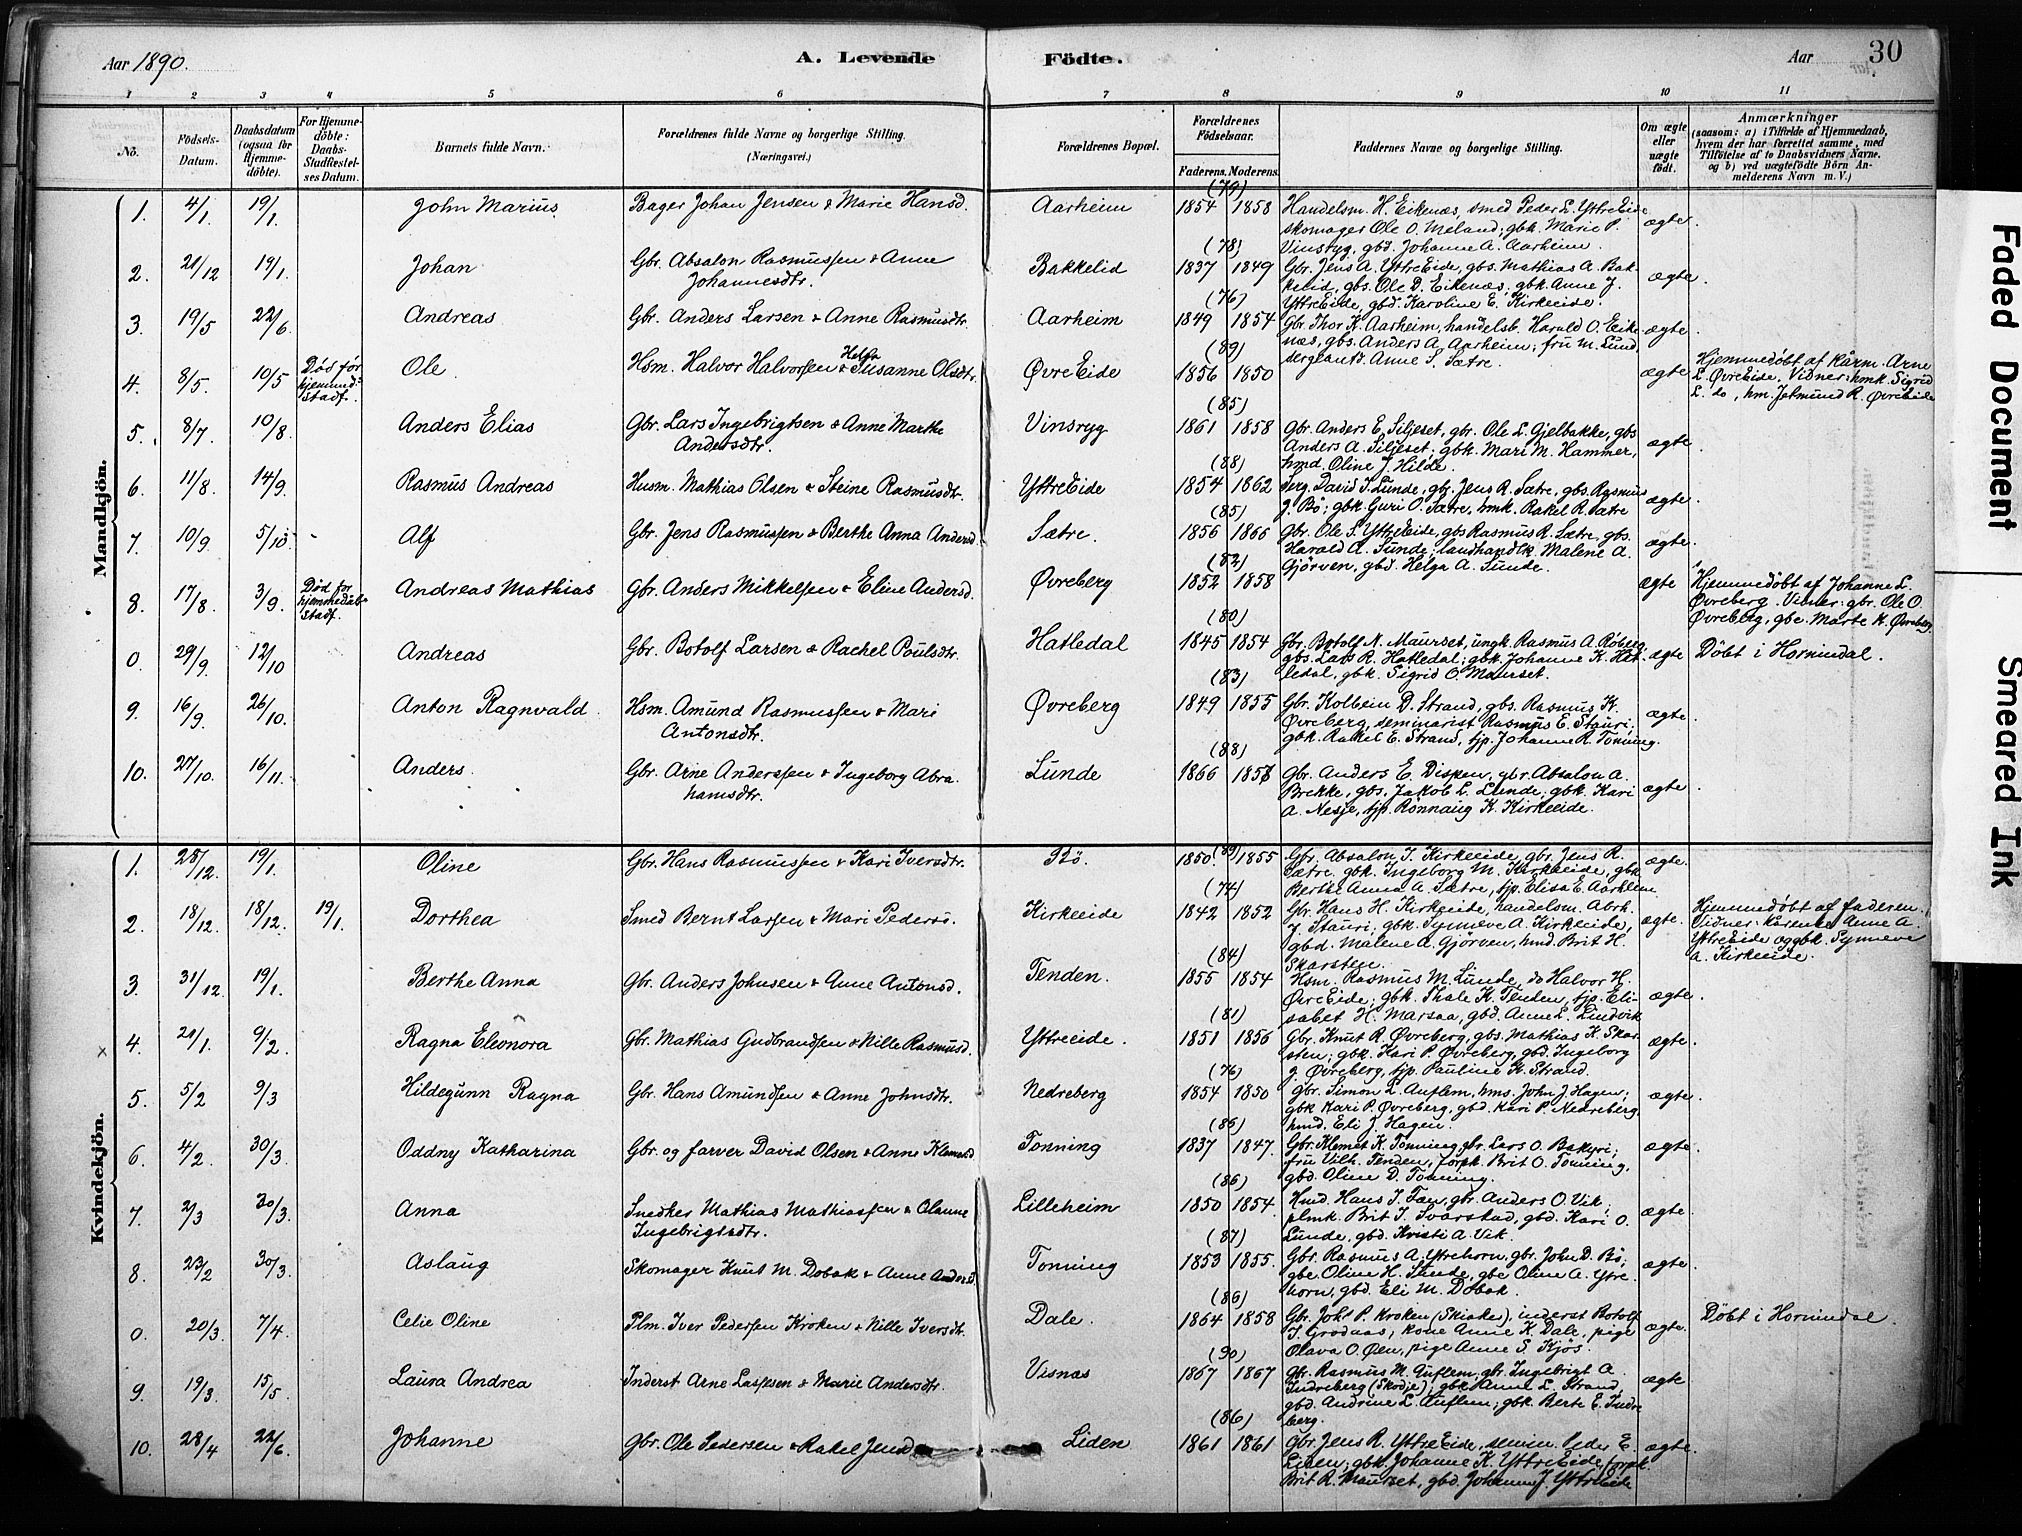 Aar 1890.
A. Levende Födte.
Aar
30
1 2 3 4 5 6 7 8 9 10 11
No.
Födsels-Datum.
Daabsdatum (ogsaa for Hjemme-döbte).
For Hjemme-döbte: Daabs-Stadfæstel-ses Datum.
Barnets fulde Navn.
Forældrenes fulde Navne og borgerlige Stilling. (Næringsvei.)
Forældrenes Bopæl.
Forældrenes Födselsaar.
Faderens. Moderens.
Faddernes Navne og borgerlige Stilling.
Om ægte eller uægte födt.
Anmærkninger (saasom: a) i Tilfælde af Hjemmedaab, hvem der har forrettet samme, med Tilföielse af to Daabsvidners Navne, og b) ved uægtefödte Börn An-melderens Navn m. V.)
Mandkjön.
1. 4/1 19/1. John Marius Bager Johan Jensen & Marie Hansd. Aarheim (79) 1854 1858 Handelsm. H. Eikenæs, smed Peder L. YttreEide ægte
skomager Ole O. Meland; gbk. Marie P.
Vinsryg, gbd. Johanne A. Aarheim.
2. 21/12 19/1. Johan Gbr. Absalon Rasmussen & Anne Bakkelid (78) 1837 1849 Gbr. Jens A. YttreEide, gbs. Mathias A. Bak- ægte.
Johannesdtr. kelid, gbs. Ole D. Eikenæs, gbk. Anne J.
YttreEide, gbd. Karoline E. Kirkeeide.
3. 19/5 22/6. Andreas Gbr. Anders Larsen & Anne Rasmusdtr. Aarheim (76) 1849 1854 Gbr. Thor K. Aarheim, handelsb. Harald O. Eike- ægte.
næs, gbs. Anders A. Aarheim; fru M. Lund,
sergeantd. Anne S. Sætre.
4. 8/5. 10/5 Död för hjemmed. stadf. Ole Hsm. Halvor Halvorsen & Helga Susanne Olsdtr. ØvreEide (89) 1856 1850 ægte Hjemmedöbt af kårm. Arne
L. ØvreEide. Vidner: hmk. Sigrid
L. do, hm. Jetmund R. ØvreEide
5. 8/7. 10/8. Anders Elias Gbr. Lars Ingebrigtsen & Anne Marthe Vinsryg (85) 1861 1858 Gbr. Anders E. Siljeset, gbr. Ole L. Gjelbakke, gbs ægte.
Andersdtr. Anders A. Siljeset; gbk. Mari M. Hammer,
hmd. Oline J. Hilde.
6. 11/8. 14/9. Rasmus Andreas Husm. Mathias Olsen & Steine Rasmusdtr. YttreEide (88) 1854 1862 Serg. David S. Lunde, gbr. Jens R. Sætre, gbs. Rasmus ægte.
J. Bö; gbk Guri O. Sætre, hmk. Rakel R. Sætre
7. 10/9. 5/10. Alf Gbr. Jens Rasmussen & Berthe Anna Andersd. Sætre. (85) 1856 1866 Gbr. Ole S. YttreEide, gbs Rasmus R. Sætre, gbs. ægte.
Harald A. Sunde; landhandlk Malene A.
Gjörven, gbd. Helga A. Sunde.
8. 17/8. 3/9. Död for hjemmedåb-stadf. Andreas Mathias Gbr. Anders Mikkelsen & Eline Andersd. Øvreberg (82) 1852 1858 ægte Hjemmedöbt af Johanne L.
Øvreberg. Vidner: gbr. Ole O.
Øvreberg, gbe. Marte K. Øvreberg.
0. 29/9. 12/10 Andreas Gbr. Botolf Larsen & Rachel Poulsdtr. Hatledal (80) 1845 1854 Gbr. Botolf N. Maurset, ungk Rasmus A. Röberg, ægte Döbt i Hornindal.
gbs. Lars R. Hatledal; gbk. Johanne K. Hat-
ledal, gbk. Sigrid O. Maurset.
9. 16/9. 26/10. Anton Ragnvald. Hsm. Amund Rasmussen & Mari Øvreberg (83) 1849 1855 Gbr. Kolbein D. Strand, gbs. Rasmus K. ægte.
Antonsdtr. Øvreberg, seminarist Rasmus E. Stauri;
gbk. Rakel E. Strand, tjp. Johanne R. Tonning.
10. 27/10. 16/11. Anders. Gbr. Arne Anderssen & Ingeborg Abra- Lunde (88) 1866 1857 Gbr. Anders E. Dispen, gbr. Absalon A. ægte.
hamsdtr. Brekke, gbs. Jakob L. Lunde; gbk. Kari
A. Nesje, tjp. Rönnaug K. Kirkeeide.
Kvindekjön.
1. 28/12. 19/1. Oline Gbr. Hans Rasmussen & Kari Iversdtr. Bö. (89) 1850. 1855 Gbr. Absalon J. Kirkeeide, gbr. Jens R. ægte.
Sætre, gbk. Ingeborg M. Kirkeeide, gbk
Berthe Anna A. Sætre, tjp. Elisa E. Aarheim
2. 18/12. 18/12. 19/1. Dorthea Smed Bernt Larsen & Mari Pedersd. Kirkeeide (74) 1842 1852 Gbr. Hans H. Kirkeeide, handelsm. Abrh. ægte. Hjemmedöbt af faderen.
J. Stauri; gbk. Synneve A. Kirkeeide, Vidner: Anne A.
gbd. Malene A. Gjörven, hmd. Brit H. YttreEide og gbk. Synneve
Skarsten. A. Kirkeeide.
3. 31/12. 19/1. Berthe Anna Gbr. Anders Johnsen & Anne Antonsd. Tenden. (84) 1855 1854 Hsm. Rasmus M. Lunde, do Halvor H. ægte.
ØvreEide; gbk. Thale K. Tenden, tjp. Eli-
sabet H. Marsaa, gbd. Anne L. Lindvik
4. 21/1. 9/2. Ragna Eleonora Gbr. Mathias Gudbrandsen & Nille Rasmusd. Yttreeide. (81) 1851 1856 Gbr. Knut R. Øvreberg, gbs. Mathias K. Skar- ægte.
sten; gbk. Kari P. Øvreberg, gbd. Ingeborg
J. Øvreberg, tjp. Pauline K. Strand.
5. 5/2 9/3 Hildegunn Ragna Gbr. Hans Amundsen & Anne Johnsdtr. Nedreberg (76) 1854 1850 Gbr. Simon L. Auflem, hms. John J. Hagen; ægte.
gbk Kari P. Øvreberg, gbd. Kari P. Nedreberg
hmd. Eli J. Hagen.
6. 4/2. 30/3. Oddny Katharina Gbr. og farver David Olsen & Anne Klemetsd Tonning (86) 1837 1847. Gbr. Klemet K. Tonning, gbr. Lars O. Bakyri; ægte
fru Vilh. Tenden, forpk. Brit O. Tonning,
gbd. Oline D. Tonning.
7. 2/3 30/3. Anna Snedker Mathias Mathiassen & Olanne Lilleheim (86) 1850 1854. Hmd. Hans J. Fan, gbr. Anders O. Vik; ægte.
Ingebrigtsdtr. plmk. Brit I. Svarstad, gbd. Kari O.
Lunde, gbd. Kristi A. Vik.
8. 23/2 30/3. Aslaug Skomager Knut M. Dobak & Anne Andersd. Tonning (87) 1853 1855. Gbr. Rasmus A. Ytrehorn, gbr. John D. Bö; ægte.
gbe Oline H. Sunde, gbe Oline A. Ytre-
horn, gbd. Eli M. Dobak.
0. 20/3. 7/4. Celie Oline Plm. Iver Pedersen Kroken & Nille Iversdtr. Dale. (86) 1864 1858 Gbr. Joh. P. Kroken (Skiakes), inderst Botolf ægte. Döbt i Hornindal.
J. Grodaas; kone Anne K. Dale, pige
Olava O. Øen, pige Anne S. Kjös.
9. 19/3. 15/5. Laura Andrea Inderst Arne Lassesen & Marie Andersdtr. Visnæs (90) 1867 1867 Gbr. Rasmus M. Auflem, gbr Ingebrigt A. ægte
Indreberg (Skodje); gbk Anne L. Strand,
gbd. Andrine L. Auflem; gbk. Berte E. Indre-
berg.
10. 28/4 22/6. Johanne Gbr. Ole Pedersen & Rakel Jensd Liden (86) 1861 1861 Gbr. Jens R. YttreEide, semin. Peder E. ægte.
Liden; gbk. Johanne K. YttreEide, forpk.
Brit R. Maurset, gbd. Johanne J. YttreEide
Faded Document
Smeared Ink